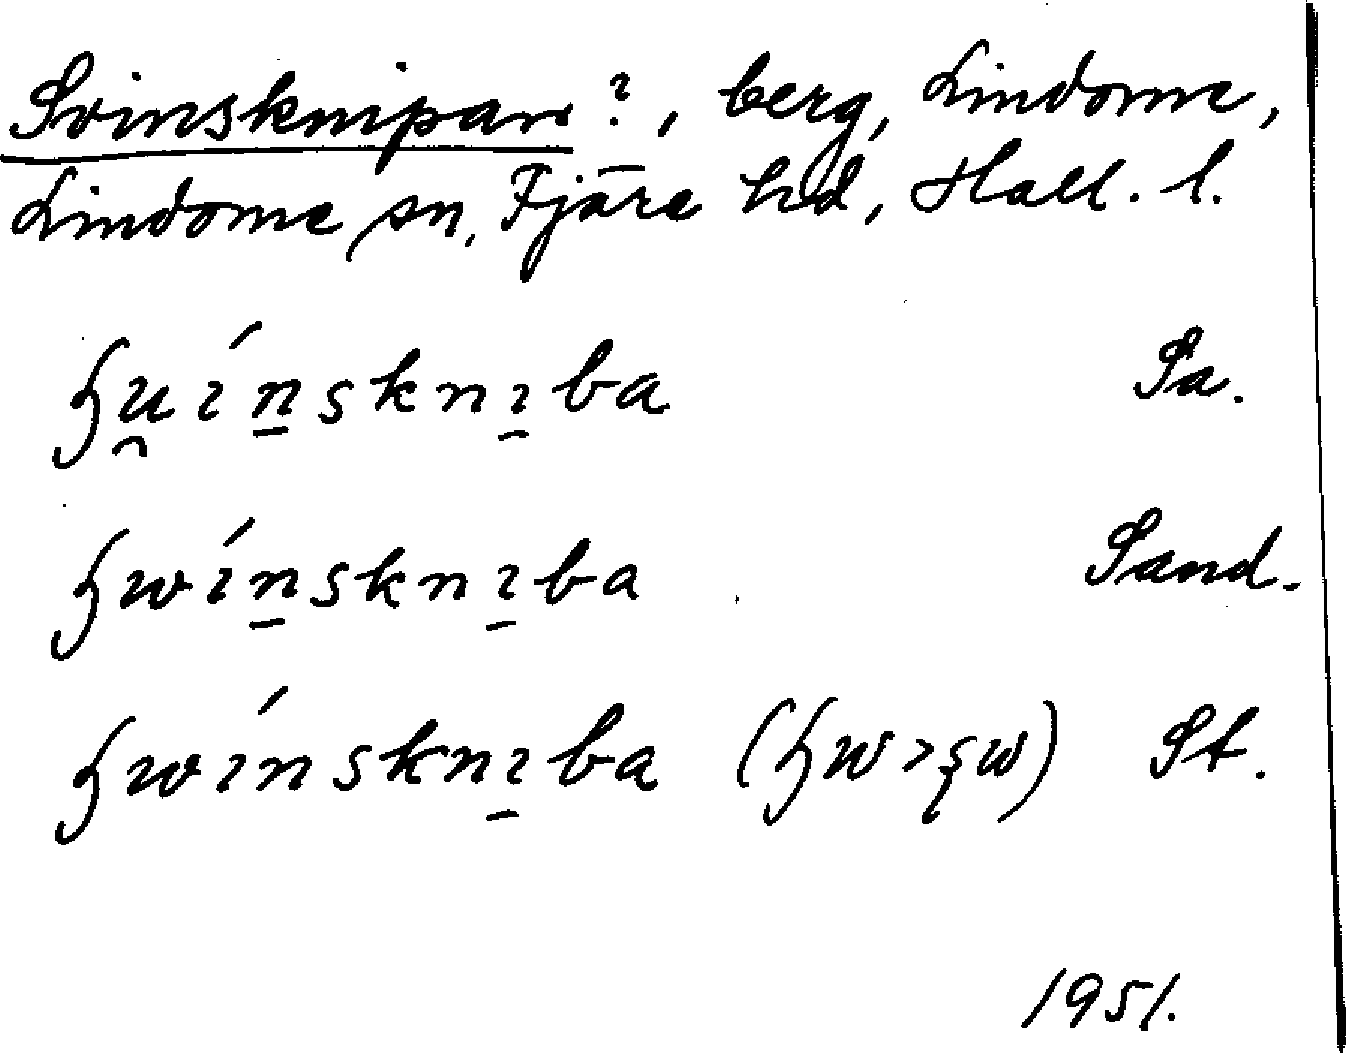 Svinsknipan?, berg, Lindome,
Lindome sn, Fjäre hd, Hall. l.
ɧu̯ɩ́n̠sknɩ̠ba Sa.
ɧwɩ́n̠sknɩ̠ba Sand.
ɧwɩ́nsknɩ̠ba (ɧw>ȿw) St.
1951.